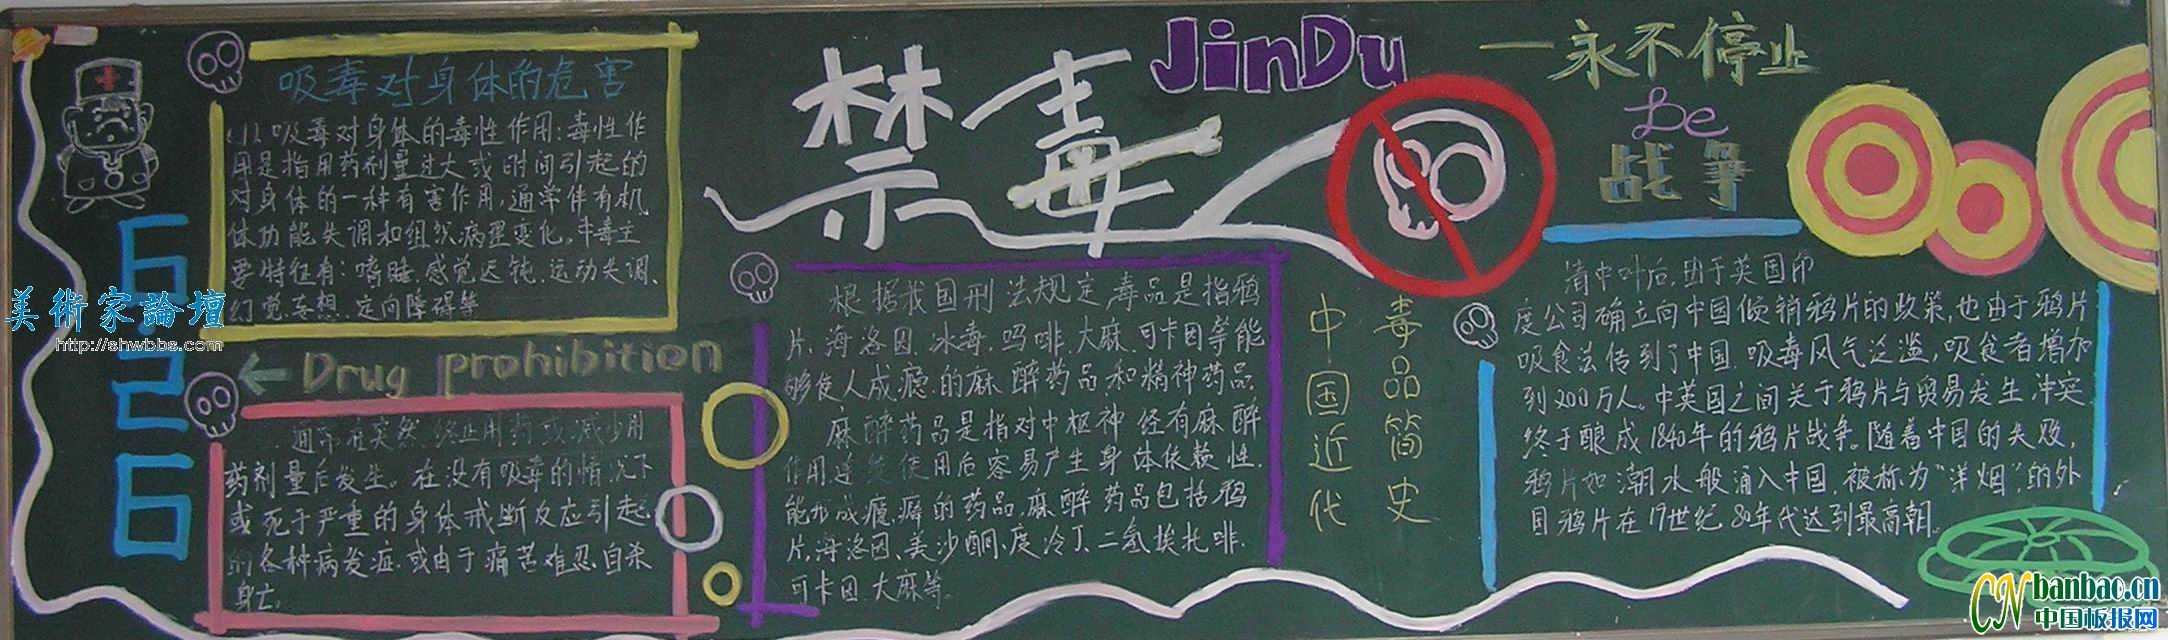 吸毒对身体的危害
(1)吸毒对身体的毒性作用:毒性作
用是指用药剂量过大或时间引起的
对身体的一种有害作用,通常伴有机
体功能失调和组织病理变化。中毒主
要特征有:嗜睡、感觉迟钝、运动失调、
幻觉、妄想、定向障碍等
6.26
美術家論壇
http://shwbbs.com
← Drug prohibition
通常在突然终止用药或减少用
药剂量后发生。在没有吸毒的情况下
或死于严重的身体戒断反应引起
的各种病发症,或由于痛苦难忍自杀
身亡。
禁毒
JinDu
根据我国刑法规定毒品是指鸦
片,海洛因,冰毒,吗啡,大麻,可卡因等能
够使人成瘾的麻醉药品和精神药品
麻醉药品是指对中枢神经有麻醉
作用连续使用后容易产生身体依赖性,
能形成瘾癖的药品,麻醉药品包括鸦
片,海洛因、美沙酮、度冷丁、二氢埃托啡、
可卡因、大麻等。
中国近代
毒品简史
一永不停止
De
战争
清中叶后,由于英国印
度公司确立向中国倾销鸦片的政策,也由于鸦片
吸食法传到了中国,吸毒风气泛滥,吸食者增加
到200万人。中英国之间关于鸦片与贸易发生冲突,
终于酿成1840年的鸦片战争。随着中国的失败,
鸦片如潮水般涌入中国,被称为“洋烟”的外
国鸦片在19世纪80年代达到最高朝。
CNbanbao.cn
中国板报网